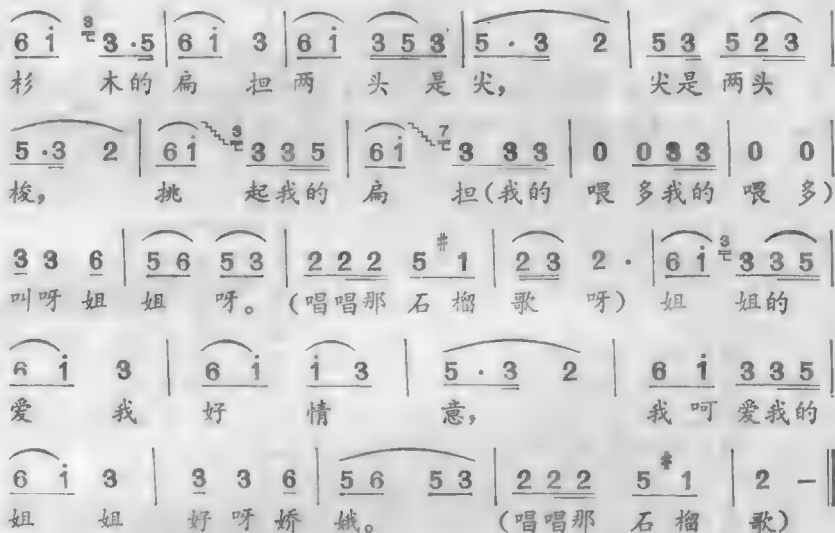 6 i 3 3 · 5 | 6 i 3 | 6 i 3 5 3 | 5 · 3 2 | 5 3 5 2 3 |
杉 木的 扁 担 两 头 是 尖, 尖是 两头
5 · 3 2 | 6 i 3 3 3 5 | 6 i 7 3 3 3 | 0 0 3 3 | 0 0 |
梭, 挑 起我的 扁 担(我的 喂 多我的 喂 多)
3 3 6 | 5 6 5 3 | 2 2 2 5 #1 | 2 3 2 · | 6 i 3 3 3 5 |
叫呀 姐 姐 呀。 (唱唱那 石 榴 歌 呀) 姐 姐的
6 i 3 | 6 i i 3 | 5 · 3 2 | 6 i 3 3 5 |
爱 我 好 情 意, 我 呵 爱我的
6 i 3 | 3 3 6 | 5 6 5 3 | 2 2 2 5 #1 | 2 – ‖
姐 姐 好 呀 娇 娥。 (唱唱那 石 榴 歌)